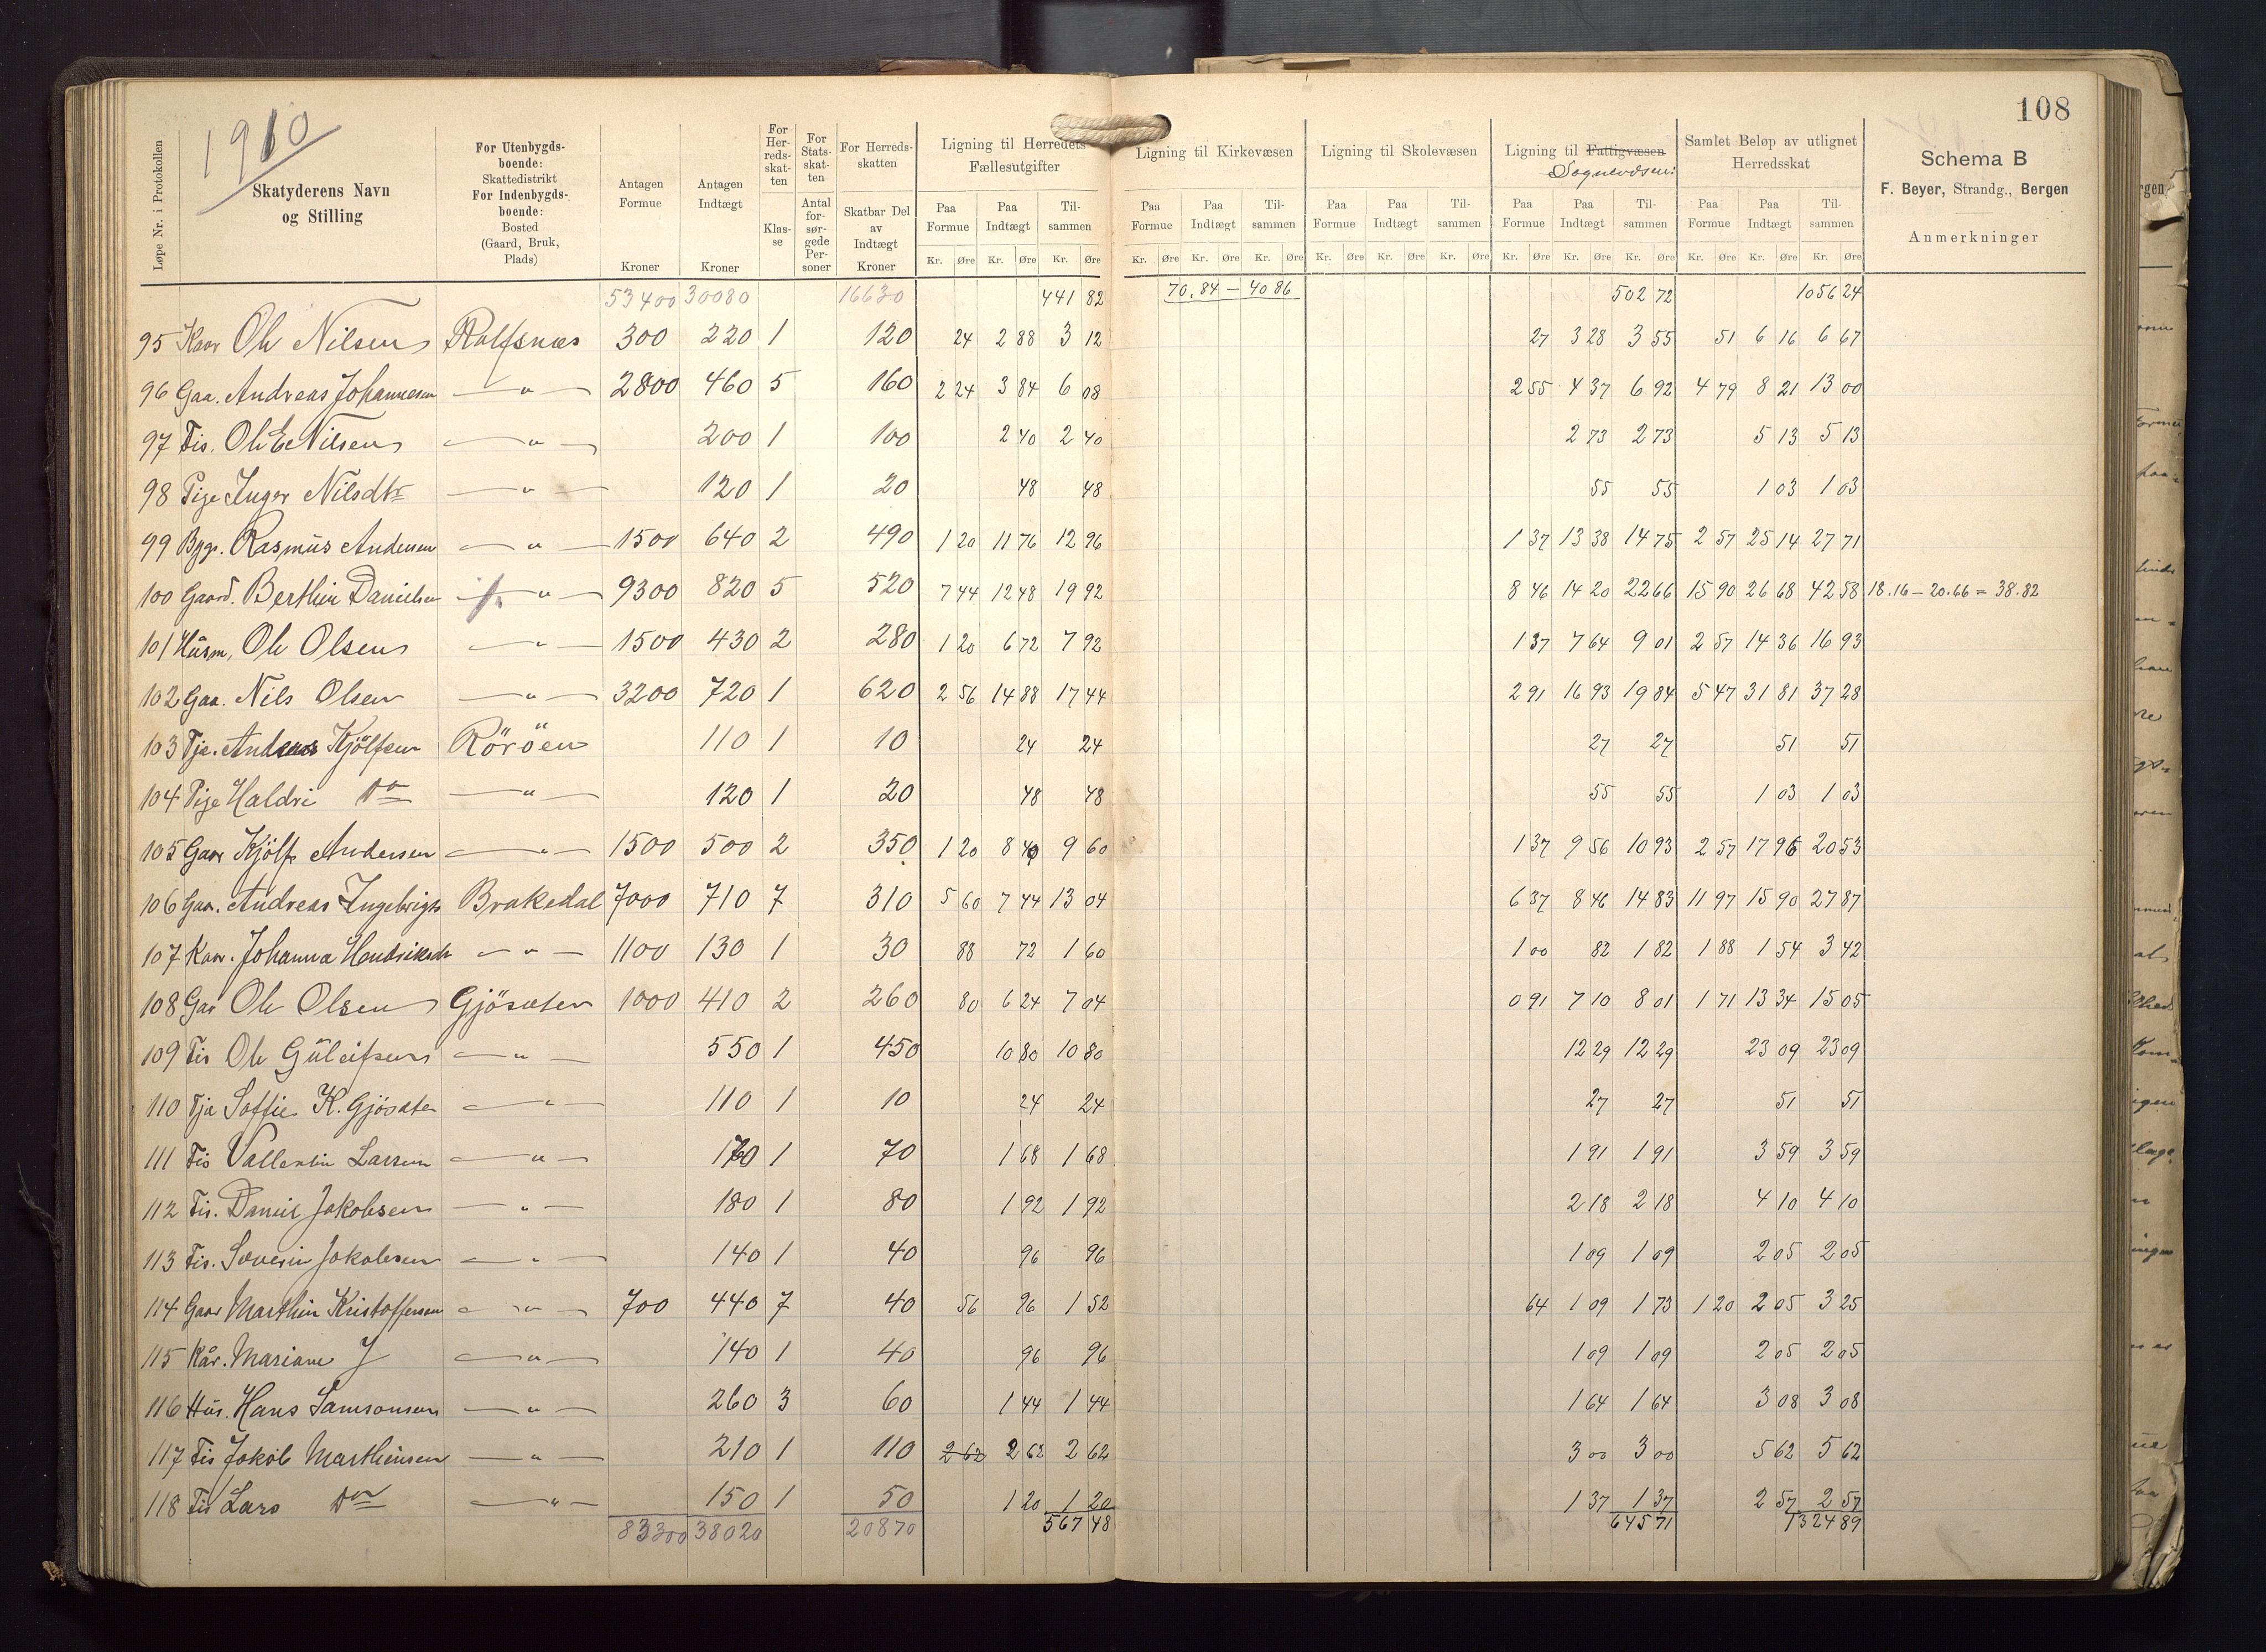 108
1910
Løpe Nr. i Protokollen
Skatyderens Navn og Stilling
For Utenbygdsboende: Skattedistrikt For Indenbygdsboende: Bosted (Gaard, Bruk, Plads)
Antagen Formue Kroner
Antagen Indtægt Kroner
For Herredsskatten Klasse
For Statsskatten Antal forsørgede Personer
For Herredsskatten Skatbar Del av Indtægt Kroner
Ligning til Herredets Fællesutgifter
Paa Formue Paa Indtægt Tilsammen
Kr. Øre Kr. Øre Kr. Øre
Ligning til Kirkevæsen
Paa Formue Paa Indtægt Tilsammen
Kr. Øre Kr. Øre Kr. Øre
Ligning til Skolevæsen
Paa Formue Paa Indtægt Tilsammen
Kr. Øre Kr. Øre Kr. Øre
Ligning til Fattigvæsen
Sognevæsen:
Paa Formue Paa Indtægt Tilsammen
Kr. Øre Kr. Øre Kr. Øre
Samlet Beløp av utlignet Herredsskat
Paa Formue Paa Indtægt Tilsammen
Kr. Øre Kr. Øre Kr. Øre
Schema B
F. Beyer, Strandg., Bergen
Anmerkninger
53400 30080 16630 441 82 70,84 — 40 86 502 72 1056 24
95 Kaar Ole Nilsen Rolfsnæs 300 220 1 120 24 2 88 3 12 27 3 28 3 55 51 6 16 6 67
96 Gaa. Andreas Johannesen — " — 2800 460 5 160 2 24 3 84 6 08 2 55 4 37 6 92 4 79 8 21 13 00
97 Fis. Ole E Nilsen — " — 200 1 100 2 40 2 40 2 73 2 73 5 13 5 13
98 Pige Inger Nilsdtr — " — 120 1 20 48 48 55 55 1 03 1 03
99 Byg. Rasmus Andersen — " — 1500 640 2 490 1 20 11 76 12 96 1 37 13 38 14 75 2 57 25 14 27 71
100 Gaard. Berthin Danielsen — " — 9300 820 5 520 7 44 12 48 19 92 8 46 14 20 22 66 15 90 26 68 42 58 18.16 — 20.66 = 38.82
101 Husm. Ole Olsen — " — 1500 430 2 280 1 20 6 72 7 92 1 37 7 64 9 01 2 57 14 36 16 93
102 Gaa. Nils Olsen — " — 3200 720 1 620 2 56 14 88 17 44 2 91 16 93 19 84 5 47 31 81 37 28
103 Tje. Anders Kjölfsen Röröen 110 1 10 24 24 27 27 51 51
104 Pige Haldri Do — " — 120 1 20 48 48 55 55 1 03 1 03
105 Gaar Kjölf Andersen — " — 1500 500 2 350 1 20 8 40 9 60 1 37 9 56 10 93 2 57 17 96 20 53
106 Gaa. Andreas Ingebrigts Brakedal 7000 710 7 310 5 60 7 44 13 04 6 37 8 46 14 83 11 97 15 90 27 87
107 Kaar. Johanna Hendriksdr — " — 1100 130 1 30 88 72 1 60 1 00 82 1 82 1 88 1 54 3 42
108 Gaa Ole Olsen Gjösæter 1000 410 2 260 80 6 24 7 04 0 91 7 10 8 01 1 71 13 34 15 05
109 Fis Ole Guleifsen — " — 550 1 450 10 80 10 80 12 29 12 29 23 09 23 09
110 Tje Soffie K. Gjösæter — " — 110 1 10 24 24 27 27 51 51
111 Fis Vallentin Larsen — " — 170 1 70 1 68 1 68 1 91 1 91 3 59 3 59
112 Fis. Daniel Jakobsen — " — 180 1 80 1 92 1 92 2 18 2 18 4 10 4 10
113 Fis. Severin Jakobsen — " — 140 1 40 96 96 1 09 1 09 2 05 2 05
114 Gaar Marthin Kristoffersen — " — 700 440 7 40 56 96 1 52 64 1 09 1 73 1 20 2 05 3 25
115 Kår. Mariane J — " — 140 1 40 96 96 1 09 1 09 2 05 2 05
116 Hus. Hans Samsonsen — " — 260 3 60 1 44 1 44 1 64 1 64 3 08 3 08
117 Fis Jakob Marthinsen — " — 210 1 110 2 62 2 62 2 62 3 00 3 00 5 62 5 62
118 Fis Lars Do — " — 150 1 50 1 20 1 20 1 37 1 37 2 57 2 57
83300 38020 20870 567 48 645 71 1324 89